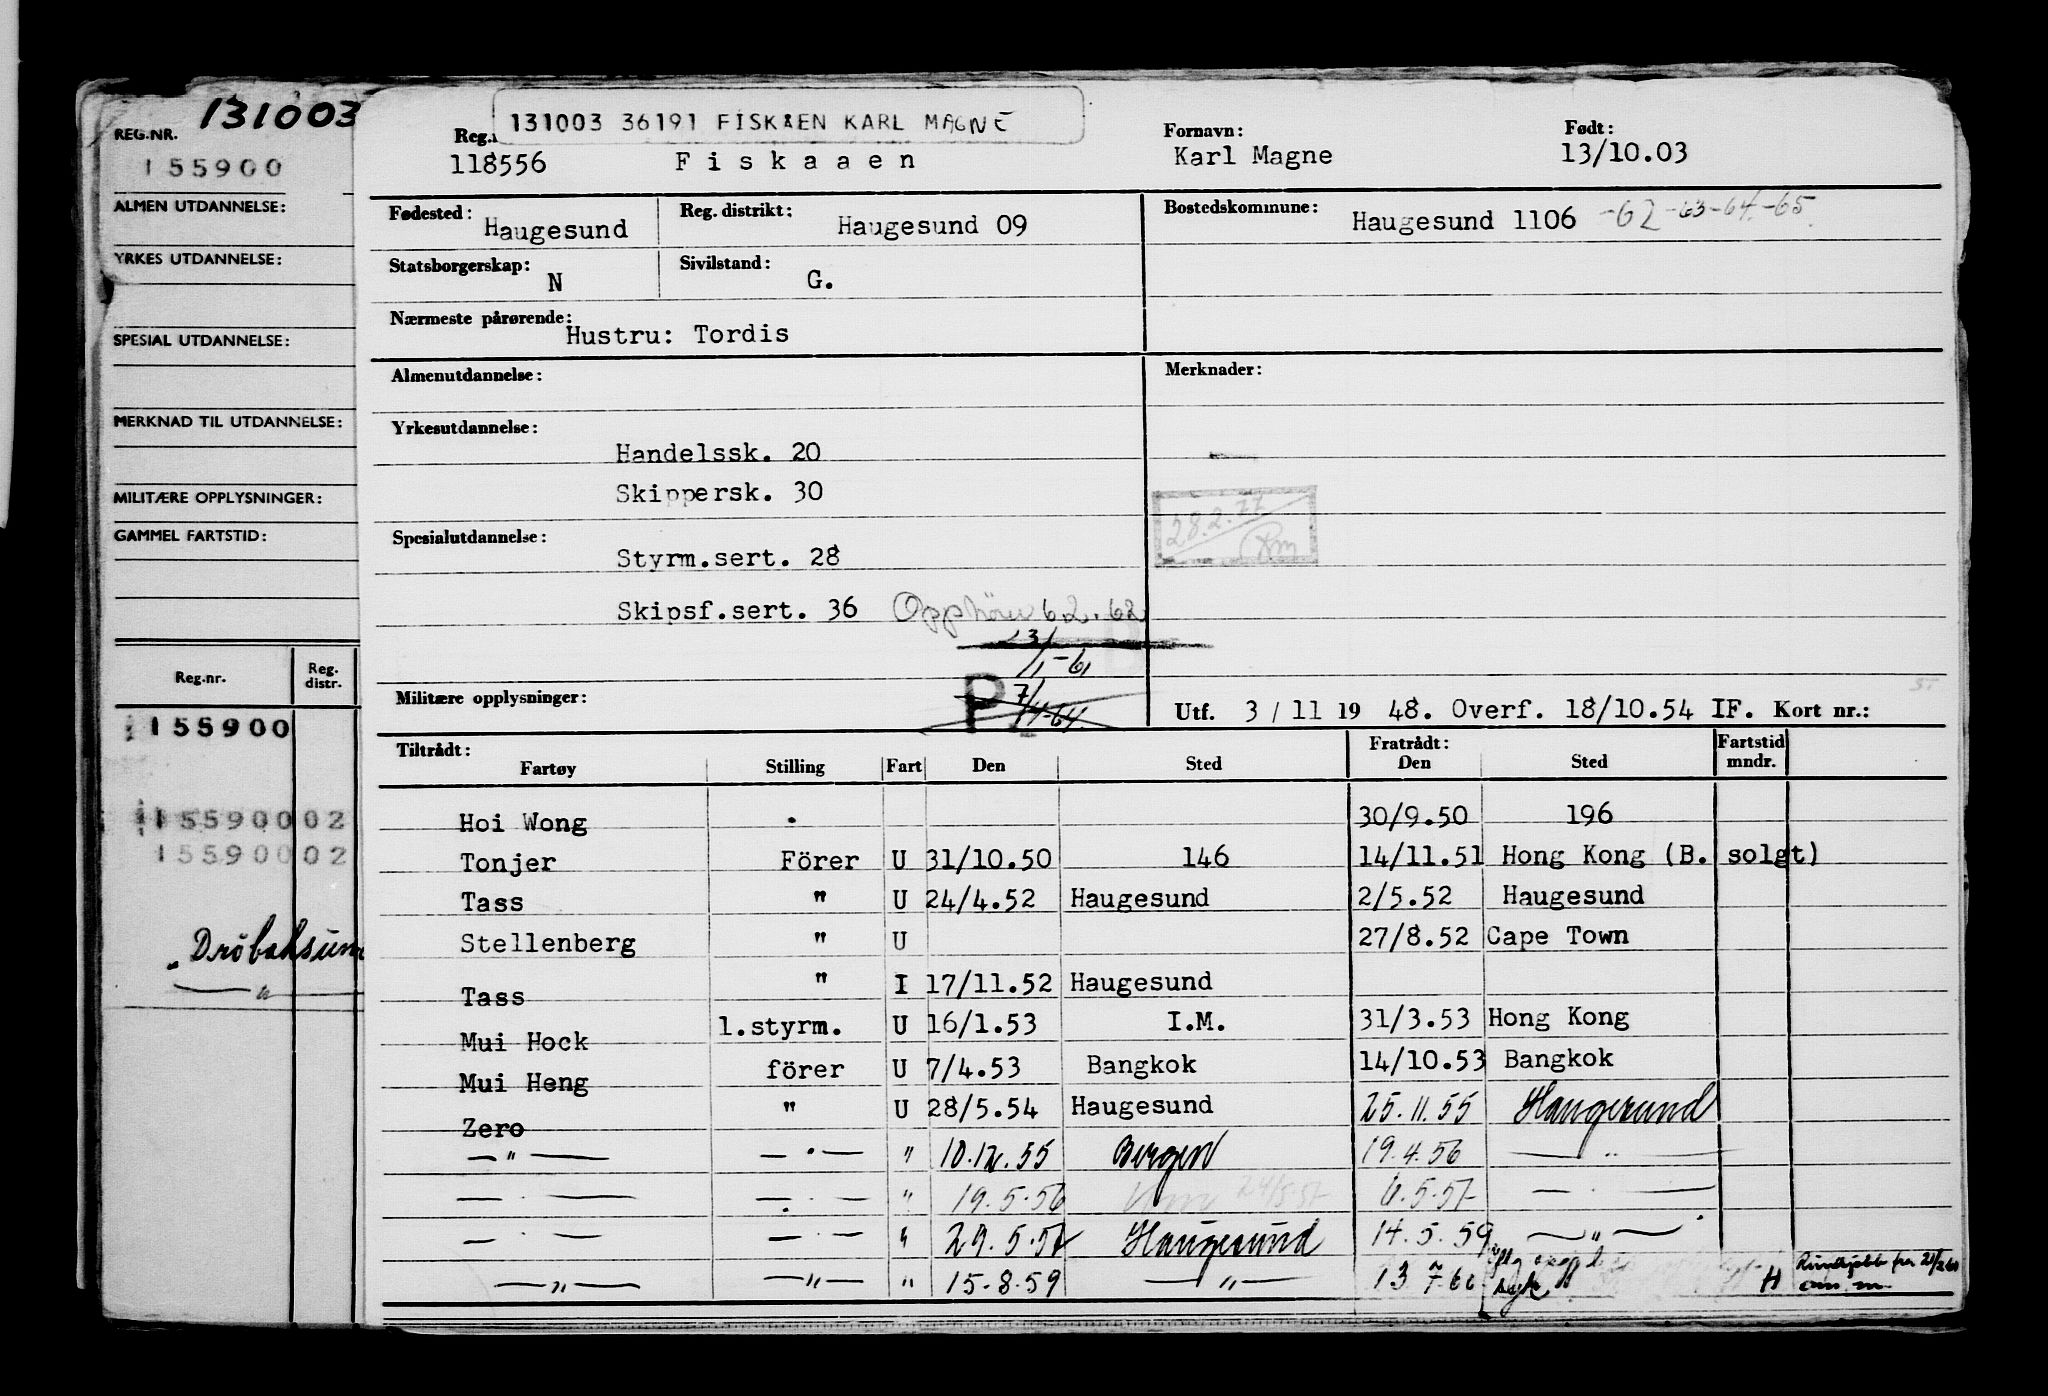 131003
REG.NR.
155900
ALMEN UTDANNELSE:
YRKES UTDANNELSE:
SPESIAL UTDANNELSE:
MERKNAD TIL UTDANNELSE:
MILITÆRE OPPLYSNINGER:
GAMMEL FARTSTID:
Reg.nr. Reg. distr.
155900
155900 02
155900 02
131003 36191 FISKÅEN KARL MAGNE
118556 Fiskaaen
Fornavn: Karl Magne
Født: 13/10.03
Fødested: Haugesund
Reg. distrikt: Haugesund 09
Bostedskommune: Haugesund 1106 -62-63-64-65
Statsborgerskap: N
Sivilstand: G.
Nærmeste pårørende: Hustru: Tordis
Almenutdannelse:
Merknader:
Yrkesutdannelse:
Handelssk. 20
Skippersk. 30
28.2.77
Spesialutdannelse:
Styrm.sert. 28
Skipsf.sert. 36
62.62
3/1-61
P 7/4-64
Militære opplysninger:
Utf. 3/11 19 48. Overf. 18/10.54 IF. Kort nr.:
Tiltrådt: Fratrådt: Fartstid
Fartøy Stilling Fart Den Sted Den Sted mndr.
Hoi Wong 30/9.50 196
Tonjer Förer U 31/10.50 146 14/11.51 Hong Kong (B. solgt)
Tass " U 24/4.52 Haugesund 2/5.52 Haugesund
Stellenberg " U 27/8.52 Cape Town
Tass " I 17/11.52 Haugesund
Mui Hock 1.styrm. U 16/1.53 I.M. 31/3.53 Hong Kong
Mui Heng förer U 7/4.53 Bangkok 14/10.53 Bangkok
Zero " U 28/5.54 Haugesund 25.11.55 Haugesund
—"— —"— " 10.12.55 Bergen 19.4.56 —"—
—"— —"— " 19.5.56 6.5.57 —"—
—"— —"— " 29.5.57 Haugesund 14.5.59 —"—
—"— —"— " 15.8.59 —"— 13 7 60 syk H